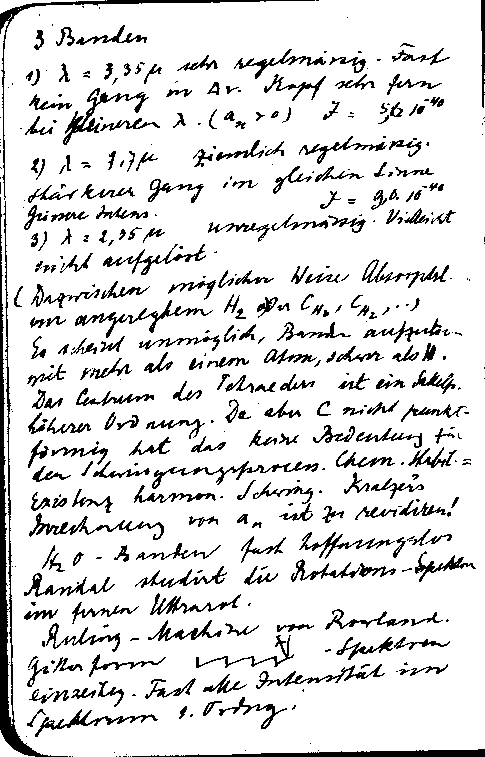 3 Banden
1) λ = 3,35 μ sehr regelmässig. Fast
kein Gang in Δν. Kopf sehr fern
bei kleineren λ. (aₙ > 0) J = 5,62 10⁻⁴⁰
2) λ = 7,7 μ ziemlich regelmässig.
stärkerer Gang im gleichen Sinne
Grössere Intens. J = 9,0. 10⁻⁴⁰
3) λ = 2,35 μ unregelmässig. Vielleicht
nicht aufgelöst.
(Dazwischen möglicher Weise Absorpt.
von angeregtem H₂ oder CH₃, CH₂, ...)
Es scheint unmöglich, Banden
mit mehr als einem Atom, schwer als H.
Das Centrum des Tetraeders ist ein
höherer Ordnung. Da aber C nicht punkt-
förmig hat das keine Bedeutung für
den Schwingungsprocess. Chem. Stabil. =
Existenz harmon. Schwing. Kratzers
Berechnung von aₙ ist zu revidiren!
H₂O - Banden fast hoffnungslos
Randal studirt die Rotations-Spektren
im fernen Ultrarot.
Ruling-Machine von Rowland.
Gitterform - Spektren
einzeitig. Fast alle Intensität im
Spektrum 1. Ordng.